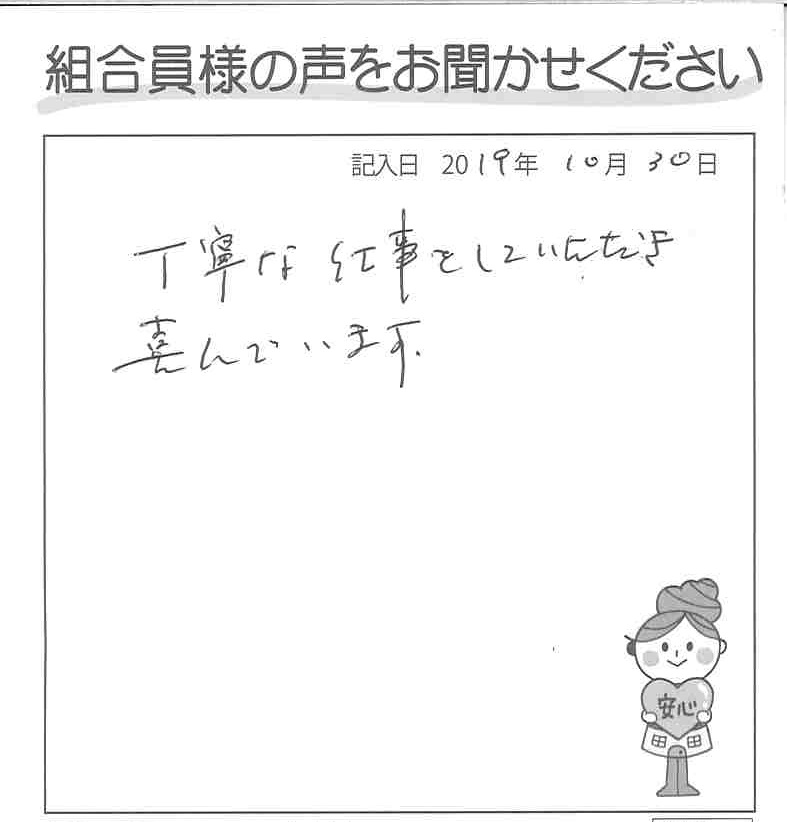 組合員様の声をお聞かせください
記入日 2019年 10月 30日
丁寧な仕事をしていただき
喜んでいます.
安心